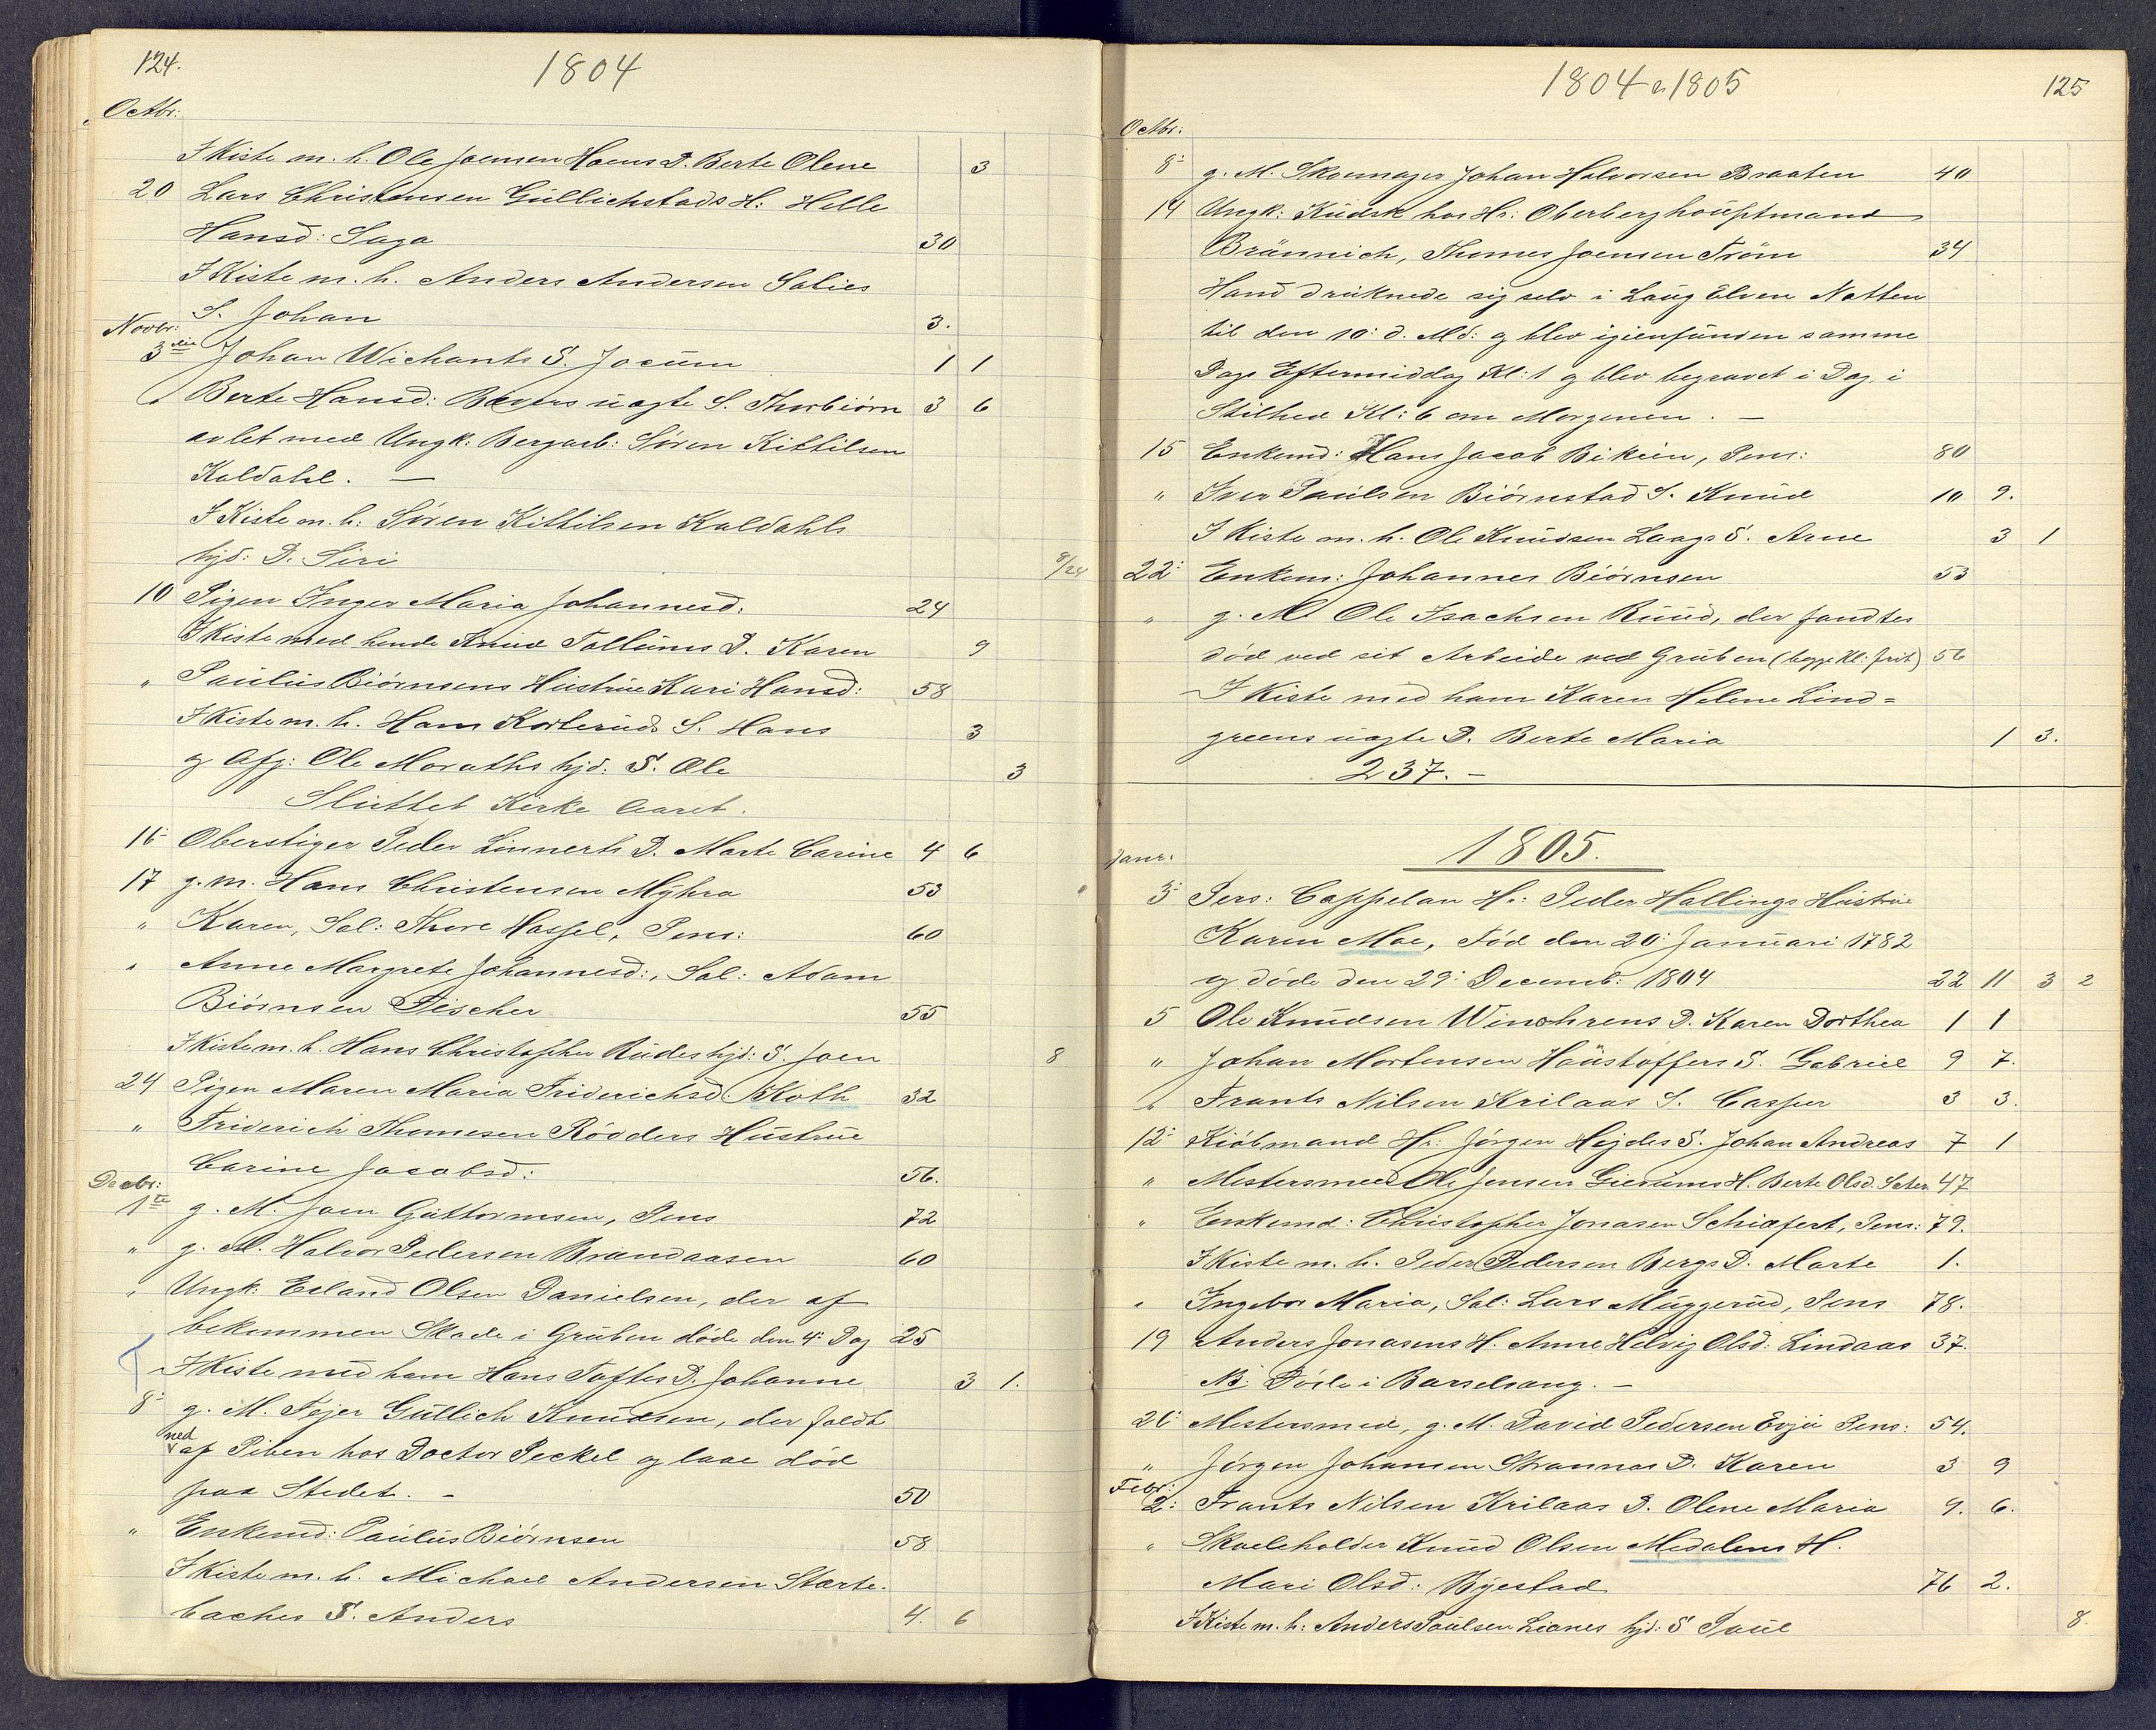 124.
1804
Octbr:
I Kiste m. h. Ole Joensen Hoens D. Berte Olene 3
20 Lars Christensen Gullichstads H: Helle
Hansd: Saga 30
I Kiste m. h. Anders Andersen Salies
S. Johan 3.
Novbr:
3die Johan Wichants S. Jocum 1 1
" Berte Hansd: Bævers uagte S. Thorbiørn 3 6
avlet med Ungk: Bergarb: Søren Kittilsen
Kaldahl. —
I Kiste m. h: Søren Kittilsen Kaldahls
hjd: D. Siri 8/24
10 Pigen Inger Maria Johannesd: 24
I Kiste med hende Amud Tollums D. Karen 9
" Paulus Biørnsens Hustrue Kari Hansd: 58
I Kiste m. h. Hans Korterüds S. Hans 3
og Afg: Ole Moraths hjd: S. Ole 3
Sluttet Kirke Aaret.
16 Oberstiger Peder Linnerts D. Marte Carine 4 6
17 g. M. Hans Christensen Mÿhra 53
" Karen, Sal: Thore Hassel, Pens: 60
" Anne Margrete Johannesd:, Sal: Adam
Biörnsen Fischer 55
I Kiste m. h. Hans Christopher Rudes hjd: S. Joen 8
24 Pigen Maren Maria Friderichsd: Koth 32
" Friderich Thomesen Rödders Hustrue
Carine Jacobsd: 56.
Decbr:
1te g. M. Joen Guttormsen, Pens 72
" g. M. Halvor Pedersen Brandaasen 60
" Ungk: Erland Olsen Danielsen, der af
bekommen Skade i Gruben döde den 4: Dag 25
I Kiste med ham Hans Toftes D. Johanne 3 1.
8: g. M. Fejer Gullich Knudsen, der faldt
ned af Piben hos Doctor Peckel og laae död
paa Stedet. — 50
" Enkemd: Paulus Biörnsen 58
I Kiste m. h. Michael Andersen Starte-
baches S. Anders 4. 6
1804 & 1805
125
Octbr:
8: g. M. Skoemager Johan Halvorsen Braaten 40
14 Ungk: Kudsk hos Hr: Oberberghouptmand
Brünnich, Thomes Joensen Tröm 34
Hand druknede sig selv i Laug Elven Natten
til den 10: d. Md: og blev igienfunden samme
Dags Eftermiddag Kl: 1 og blev begravet i Dag i
Stilhed Kl: 6 om Morgenen. —
15 Enkemd: Hans Jacob Bikuin, Pens: 80
" Iver Paulsen Biörnstad S. Knud 10 9.
I Kiste m. h. Ole Knudsen Laags S. Arne 3 1
22: Enkem: Johannes Biörnsen 53
" g. M. Ole Isachsen Ruud, der fandtes
död ved sit Arbeide ved Gruben (begge Kl: frit) 56
I Kiste med ham Karen Helene Lind=
greens uagte D. Berte Maria 1 3.
237. —
1805.
Janr.
3: Pers: Cappelan Hr: Peder Hallings Hustrue
Karen Moe, Föd den 20: Januari 1782
og döde den 29: Decemb: 1804 22 11 3 2
5 Ole Knudsen Winohrens D. Karen Dorthea 1 1
" Johan Mortensen Haustoffers S. Gabriel 9 7.
" Frants Nilsen Krilaas S. Casper 3 3.
12: Kiöbmand Hr: Jörgen Hejdes S. Johan Andreas 7 1
" Mestersmed Ole Jensen Gierums H. Berte Olsd. Seter 47
" Enkemd: Christopher Jonasen Schiafert, Pens: 79.
I Kiste m. h. Peder Pedersen Bergs D. Marte 1.
" Ingebor Maria, Sal: Lars Muggerud, Pens 78.
19 Anders Jonasens H. Anne Helvig Olsd: Lindaas 37.
NB: Döde i Barselsang. —
26: Mestersmed, g. M. David Pedersen Evju Pens: 54.
" Jörgen Johansen Strannas D. Karen 3 9
Febr:
2: Frants Nilsen Krilaas D. Olene Maria 9. 6.
" Skoeleholder Knud Olsen Medalens H.
Mari Olsd: Byestad 76 2.
I Kiste m. h: Anders Paulsen Lianes hjd: S Paul 8.